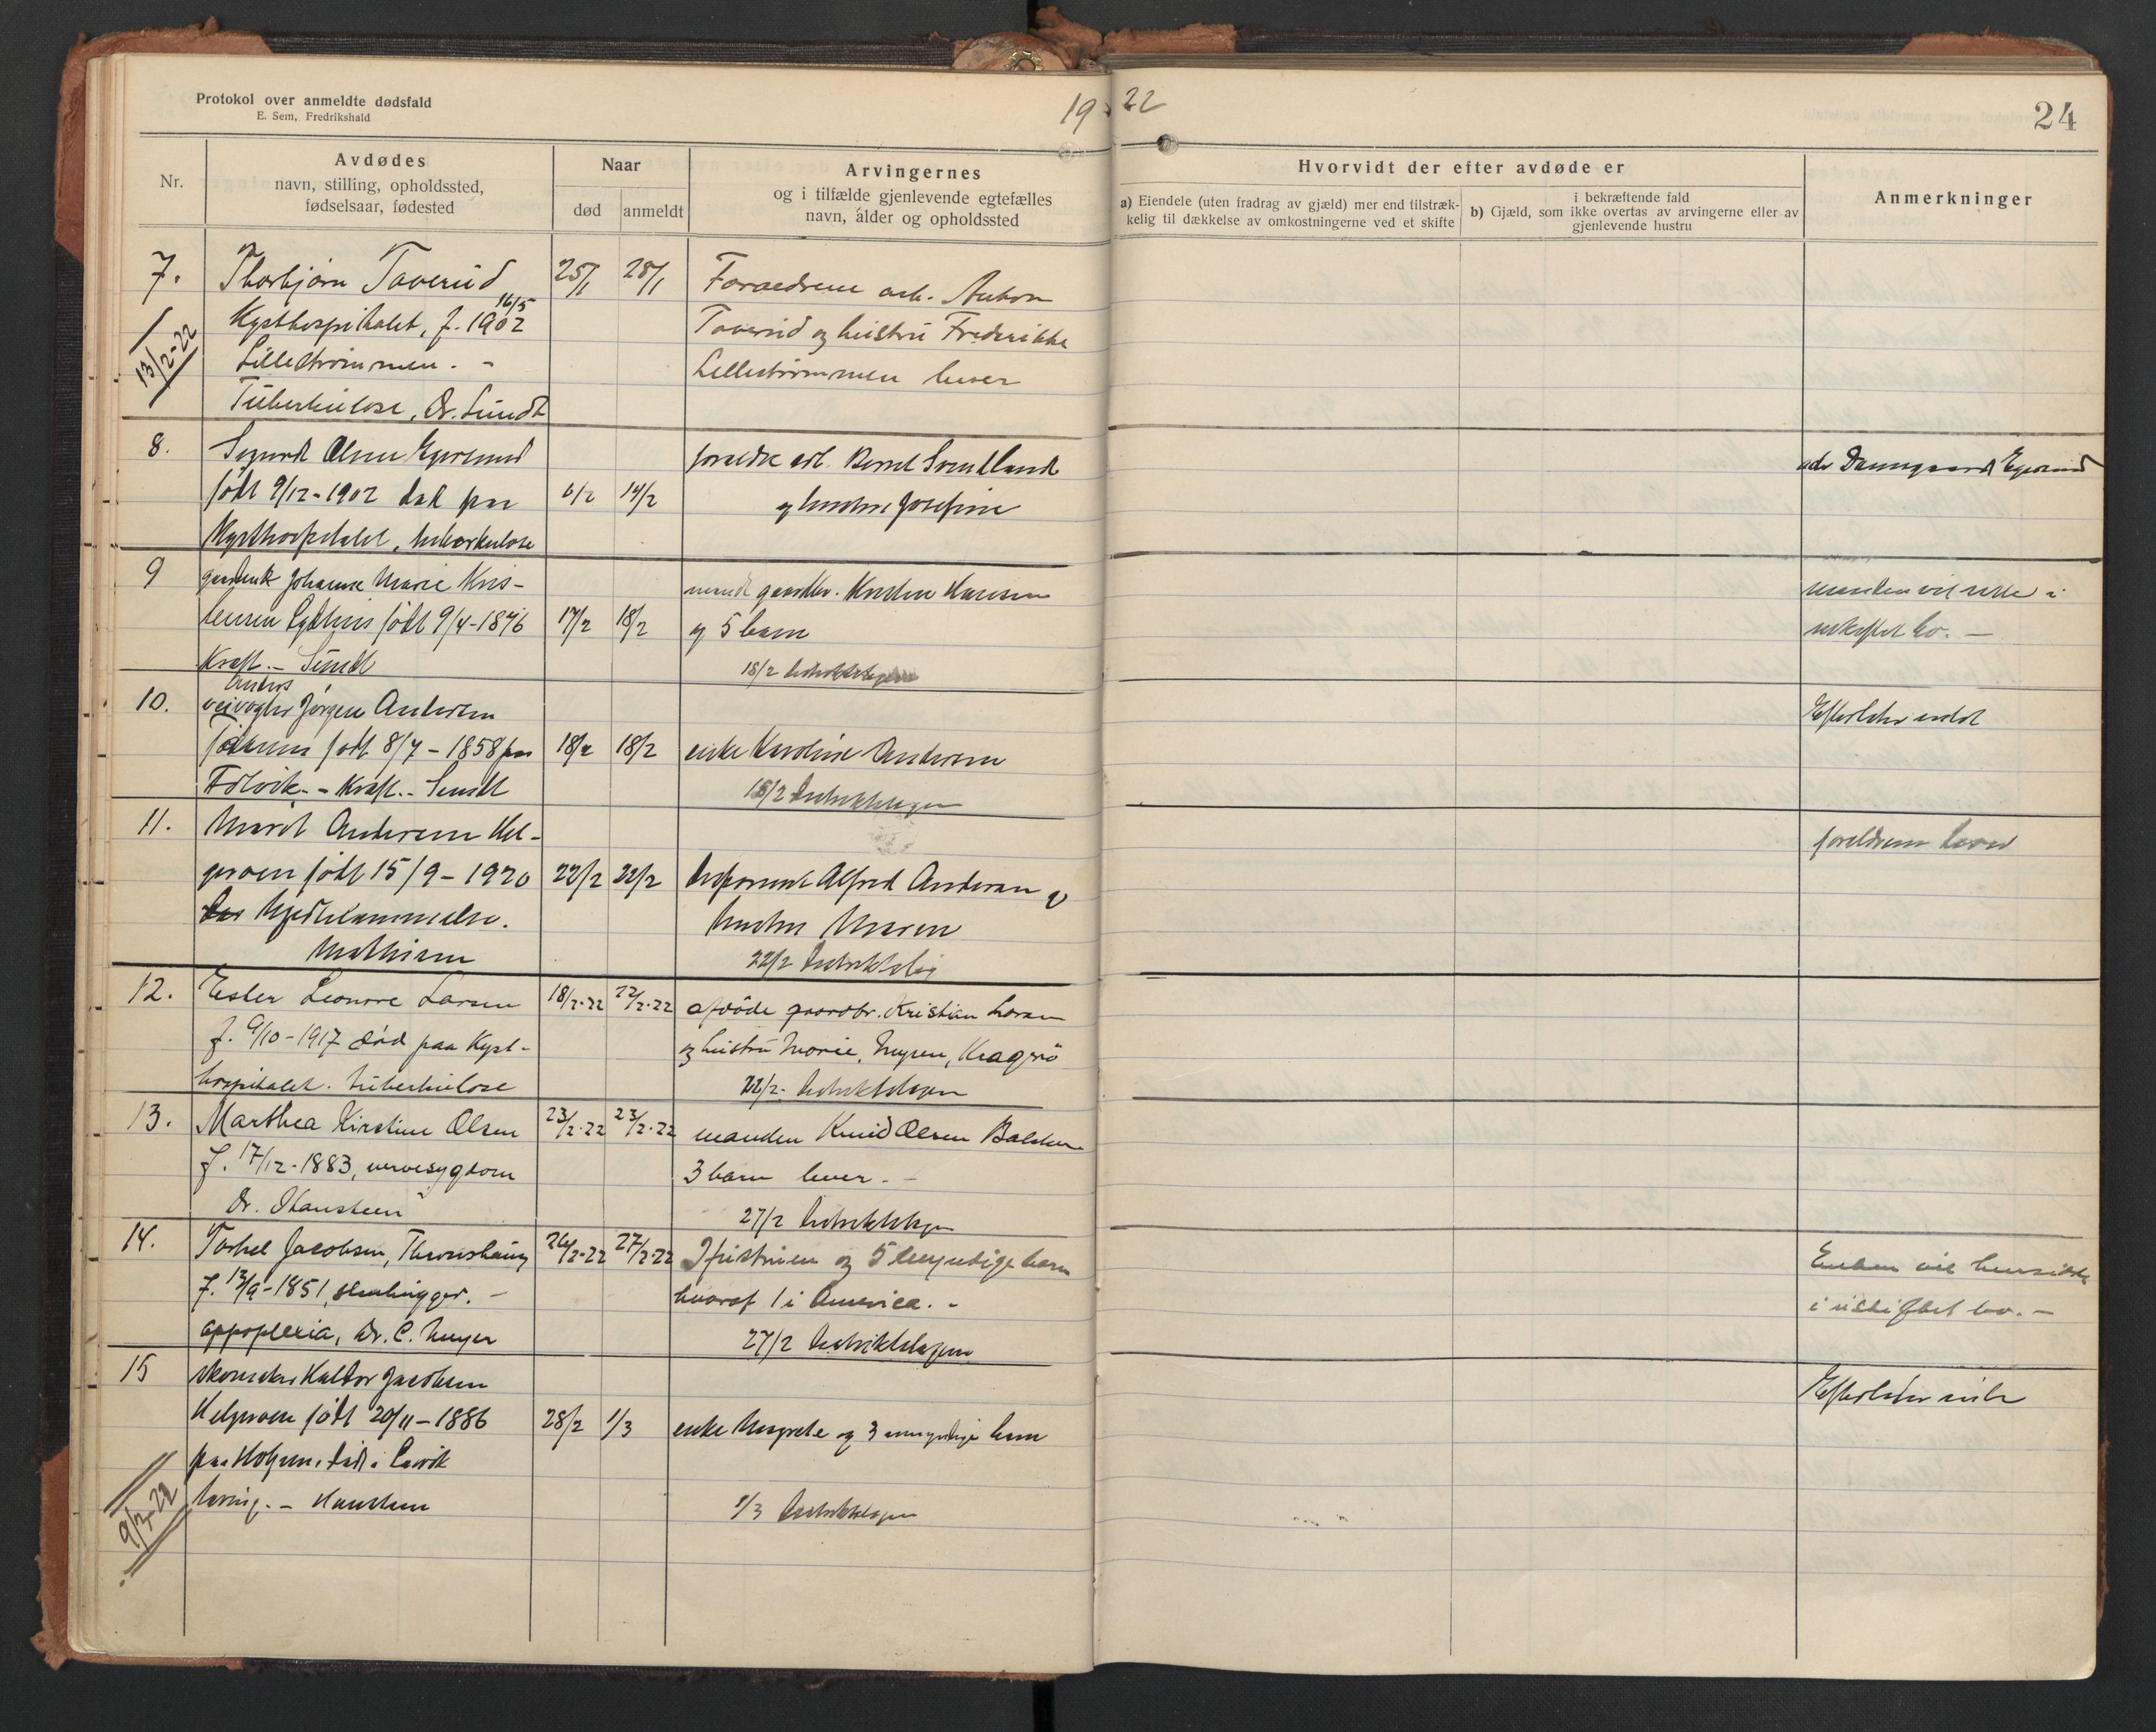 Protokol over anmeldte dødsfald
E. Sem, Fredrikshald
19 22
24
Nr.
Avdødes
navn, stilling, opholdssted,
fødselsaar, fødested
Naar
død
anmeldt
Arvingernes
og i tilfælde gjenlevende egtefælles
navn, alder og opholdssted
Hvorvidt der efter avdøde er
a) Eiendele (uten fradrag av gjæld) mer end tilstræk-
kelig til dækkelse av omkostningerne ved et skifte
i bekræftende fald
b) Gjæld, som ikke overtas av arvingerne eller av
gjenlevende hustru
Anmerkninger
7. Thorbjørn Taverud 25/1 28/1 Foraedrene arb. Anton
Kysthospitalet, f. 16/5 1902 Taverud og hustru Frederikke
13/2-22 Lillestrømmen. - Lillestrømmen lever
Tuberkulose, Dr. Sundt
8. Sigurd Olsen Egersund foreldre arb. Bernt
adr Damsgaard Egersund
født 9/12-1902 død paa 6/2 14/2 og hustru Josefine
Kysthospitalet, tuberkulose
9 Johanne Marie Kris-
mand gaardbr. Kristen Hansen
manden vil sitte i
tensen født 9/4-1876 17/2 18/2 og 5 barn
uskiftet bo. -
Kræft. - Sundt 18/2
Anders
10. veivogter Jørgen Andersen
Efterlater intet
født 8/7-1858 paa 18/2 18/2 enke Karoline Andersen
- Kræft. - Sundt 18/2 Lensmannen
11. Andersen Hel-
foreldrene lever
geroen født 15/9-1920 22/2 22/2 Alfred Andersen og
Hjertelammelse. hustru Maren
Mathisen 22/2
12. Ester Leonore Larsen 18/2-22 22/2-22 afdøde gaardbr. Kristian Larsen
f. 9/10-1917 død paa Kyst- og hustru Marie, Kragerø
hospitalet. tuberkulose 22/2
13. Marthea Kirstine Olsen 23/2-22 23/2-22 manden Knud Olsen
f. 17/12-1883, nervesygdom 3 barn lever. -
Dr. Hansteen 27/2
14. Torkel Jacobsen, 26/2-22 27/2-22 og 5 myndige barn
Enken vil hensidde
f. 13/9-1851, stenhugger. - hvoraf 1 i America. -
i uskiftet bo. -
appoplexia, Dr. C. Meyer 27/2
15 skomaker Haldor Jacobsen
Efterlater intet
Helgeroen født 20/11-1886 28/2 1/3 enke Margrete og 3 umyndige barn
død i Larvik
9/3-22 - Hansteen 1/3